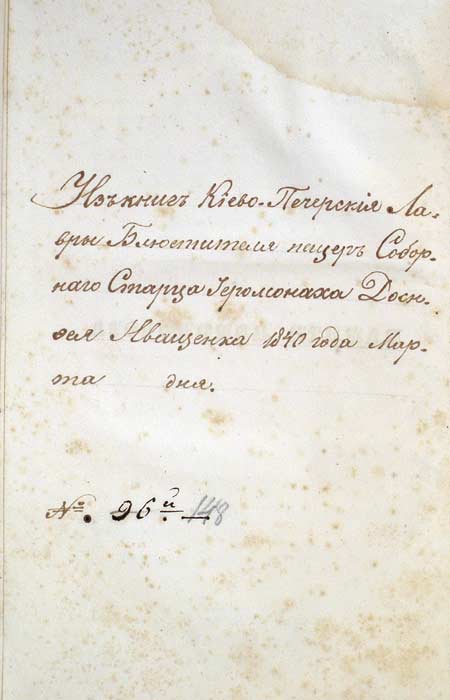 Изъ книгъ Кіево-Печерскія Ла-
вры Блюстителя пещеръ Собор-
наго Старца Іеромонаха Доси-
ѳея Иващенка 1840 года Мар-
та дня.
№. 96й. 148